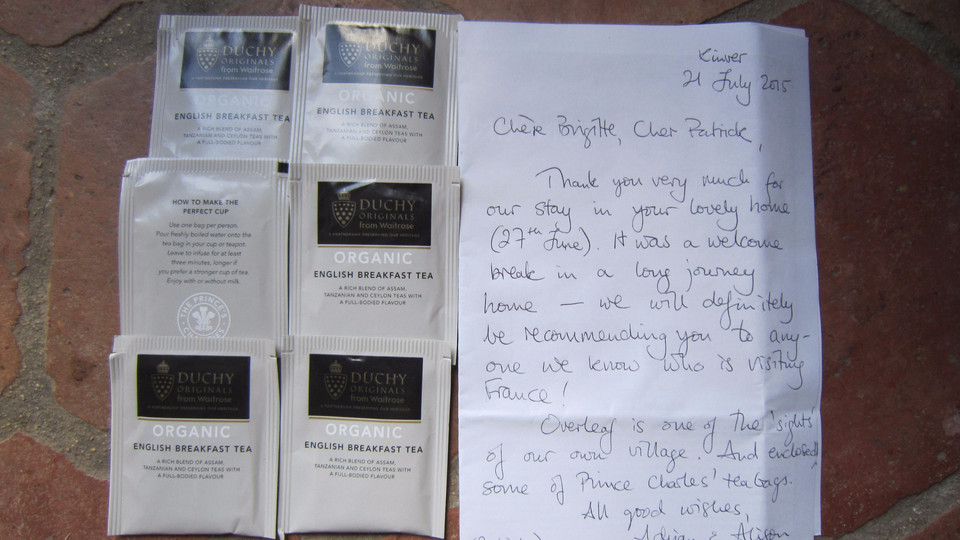 DUCHY
ORIGINALS
from Waitrose
ORGANIC
ENGLISH BREAKFAST TEA
A RICH BLEND OF ASSAM,
TANZANIAN AND CEYLON TEAS WITH
A FULL-BODIED FLAVOUR
DUCHY
ORIGINALS
from Waitrose
ORGANIC
ENGLISH BREAKFAST TEA
A RICH BLEND OF ASSAM,
TANZANIAN AND CEYLON TEAS WITH
A FULL-BODIED FLAVOUR
HOW TO MAKE THE
PERFECT CUP
Use one bag per person.
Pour freshly boiled water onto the
tea bag in your cup or teapot.
Leave to infuse for at least
three minutes, longer if
you prefer a stronger cup of tea.
Enjoy with or without milk.
THE PRINCE'S
DUCHY
ORIGINALS
from Waitrose
ORGANIC
ENGLISH BREAKFAST TEA
A RICH BLEND OF ASSAM,
TANZANIAN AND CEYLON TEAS WITH
A FULL-BODIED FLAVOUR
DUCHY
ORIGINALS
from Waitrose
ORGANIC
ENGLISH BREAKFAST TEA
A RICH BLEND OF ASSAM,
TANZANIAN AND CEYLON TEAS WITH
A FULL-BODIED FLAVOUR
DUCHY
ORIGINALS
from Waitrose
ORGANIC
ENGLISH BREAKFAST TEA
A RICH BLEND OF ASSAM,
TANZANIAN AND CEYLON TEAS WITH
A FULL-BODIED FLAVOUR
Kinver
21 July 2015
Chère Brigitte, Cher Patrick,
Thank you very much for
our stay in your lovely home
(27th June). It was a welcome
break in a long journey
home — we will definitely
be recommending you to any-
one we know who is visiting
France!
Overleaf is one of the 'sights'
of our own village. And enclosed
some of Prince Charles' tea bags.
All good wishes,
Adrian & Alison